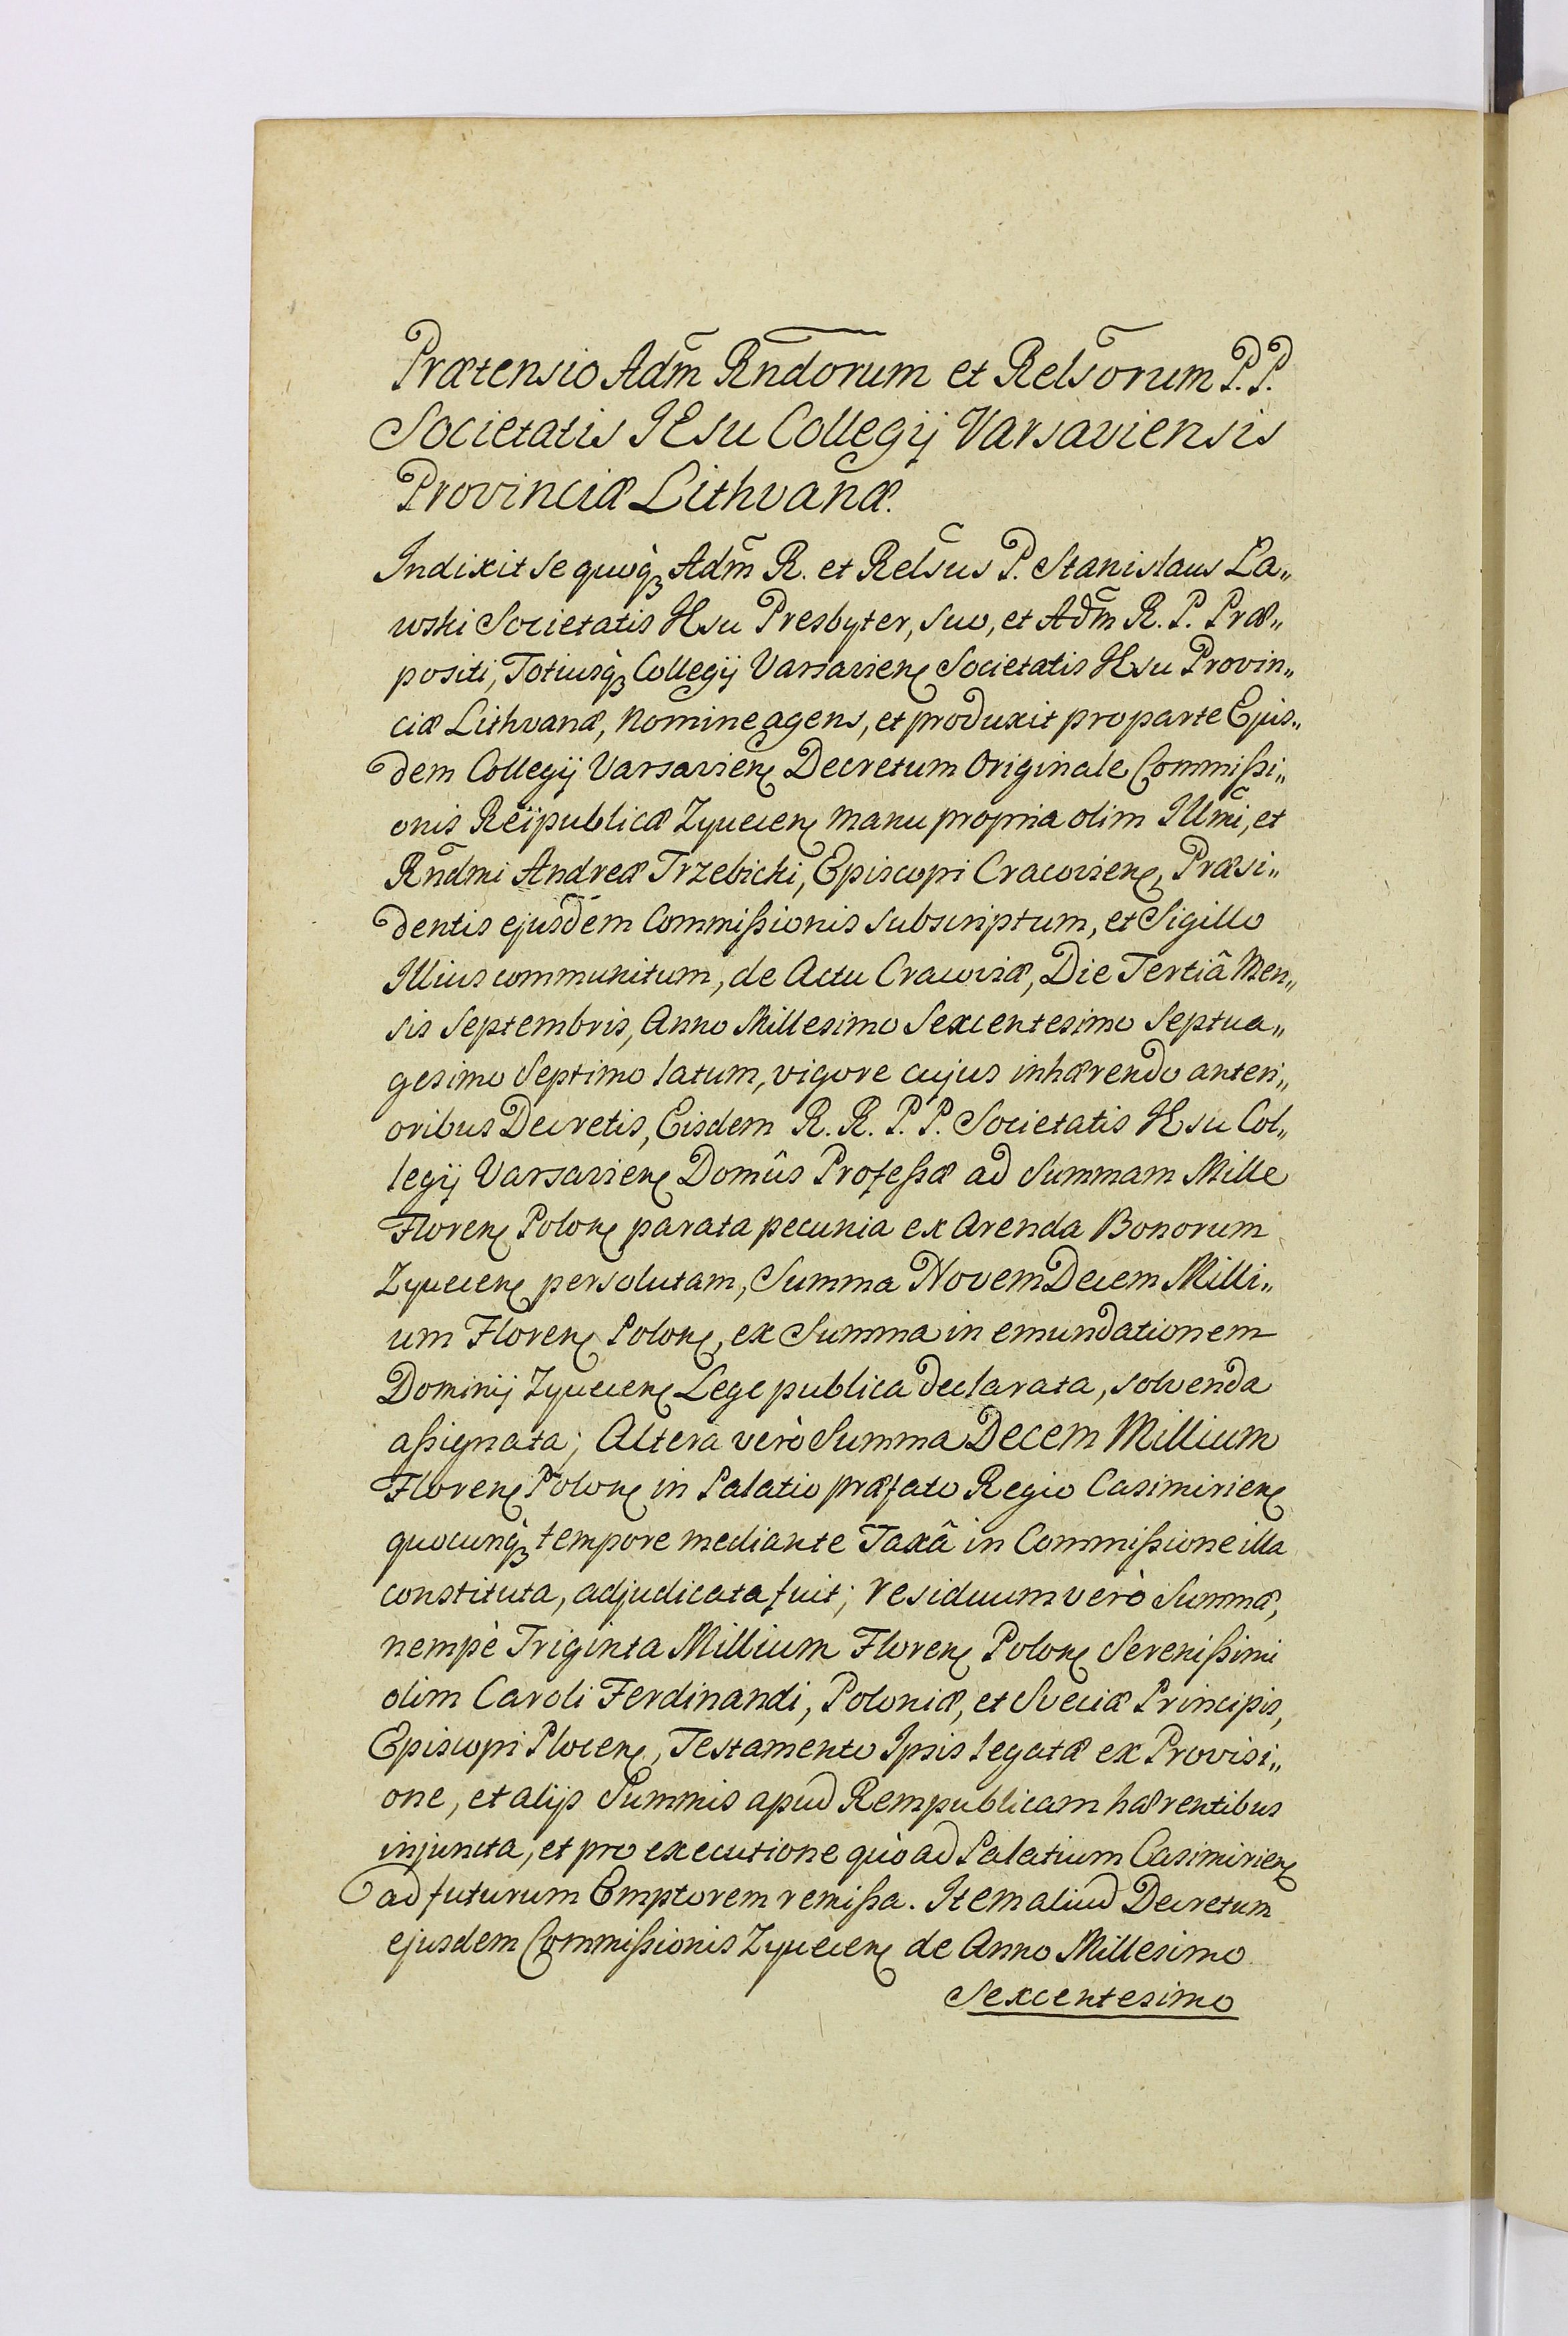 Prætensio Adm̃ Rñdorum et Rels̃orum P. P.
Societatis IEsu Collegij Varsaviensis
Provinciæ Lithvanæ.
Indixit se quoq̀ꝫ Adm̃ R. et Rels̃us P. Stanislaus La„
wski Societatis IEsu Presbyter, suo, et Adm̃ R. P. Præ„
positi, Totiusq̀ꝫ Collegij Varsavien̨ Societatis IEsu Provin„
ciæ Lithvanæ, nomine agens, et produxit pro parte Ejus„
dem Collegij Varsavien̨ Decretum Originale Commißi„
onis Reipublicæ Zyvecen̨ manu propria olim Illm̃i, et
Rñdmi Andreæ Trzebicki, Episcopi Cracovien̨, Præsi„
dentis ejusdem Commißionis subscriptum, et Sigillo
Illius communitum, de Actu Cracoviæ, Die Tertiâ Men„
sis Septembris, Anno Millesimo Sexcentesimo Septua„
gesimo Septimo latum, vigore cujus inhærendo anteri„
oribus Decretis, Eisdem R. R. P. P. Societatis IEsu Col„
legij Varsavien̨ Domûs Profeßæ ad Summam Mille
Floren̨ Polon̨ parata pecunia ex Arenda Bonorum
Zyvecen̨ persolutam, Summa Novem Decem Milli„
um Floren̨ Polon̨, ex Summa in emundationem
Dominij Zyvecen̨ Lege publica declarata, solvenda
aßignata; Altera verò Summa Decem Millium
Floren̨ Polon̨ in Palatio præfato Regio Casimirien̨
quocunq̀ꝫ tempore mediante Taxâ in Commißione illa
constituta, adjudicata fuit; residuum verò Summæ,
nempè Triginta Millium Floren̨ Polon̨ Serenißimi
olim Caroli Ferdinandi, Poloniæ, et Sveciæ Principis,
Episcopi Plocen̨, Testamento Ipsis legatæ ex Provisi„
one, et alijs Summis apud Rempublicam hærentibus
injuncta, et pro executione quò ad Palatium Casimirien̨
ad futurum Emptorem remißa. Item aliud Decretum
ejusdem Commißionis Zyvecen̨ de Anno Millesimo
Sexcentesimo